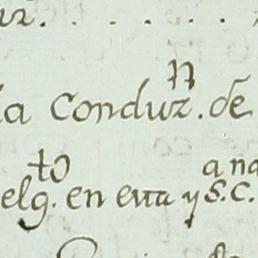 la Conduz.n de
elg.to en esta y S.C.ana